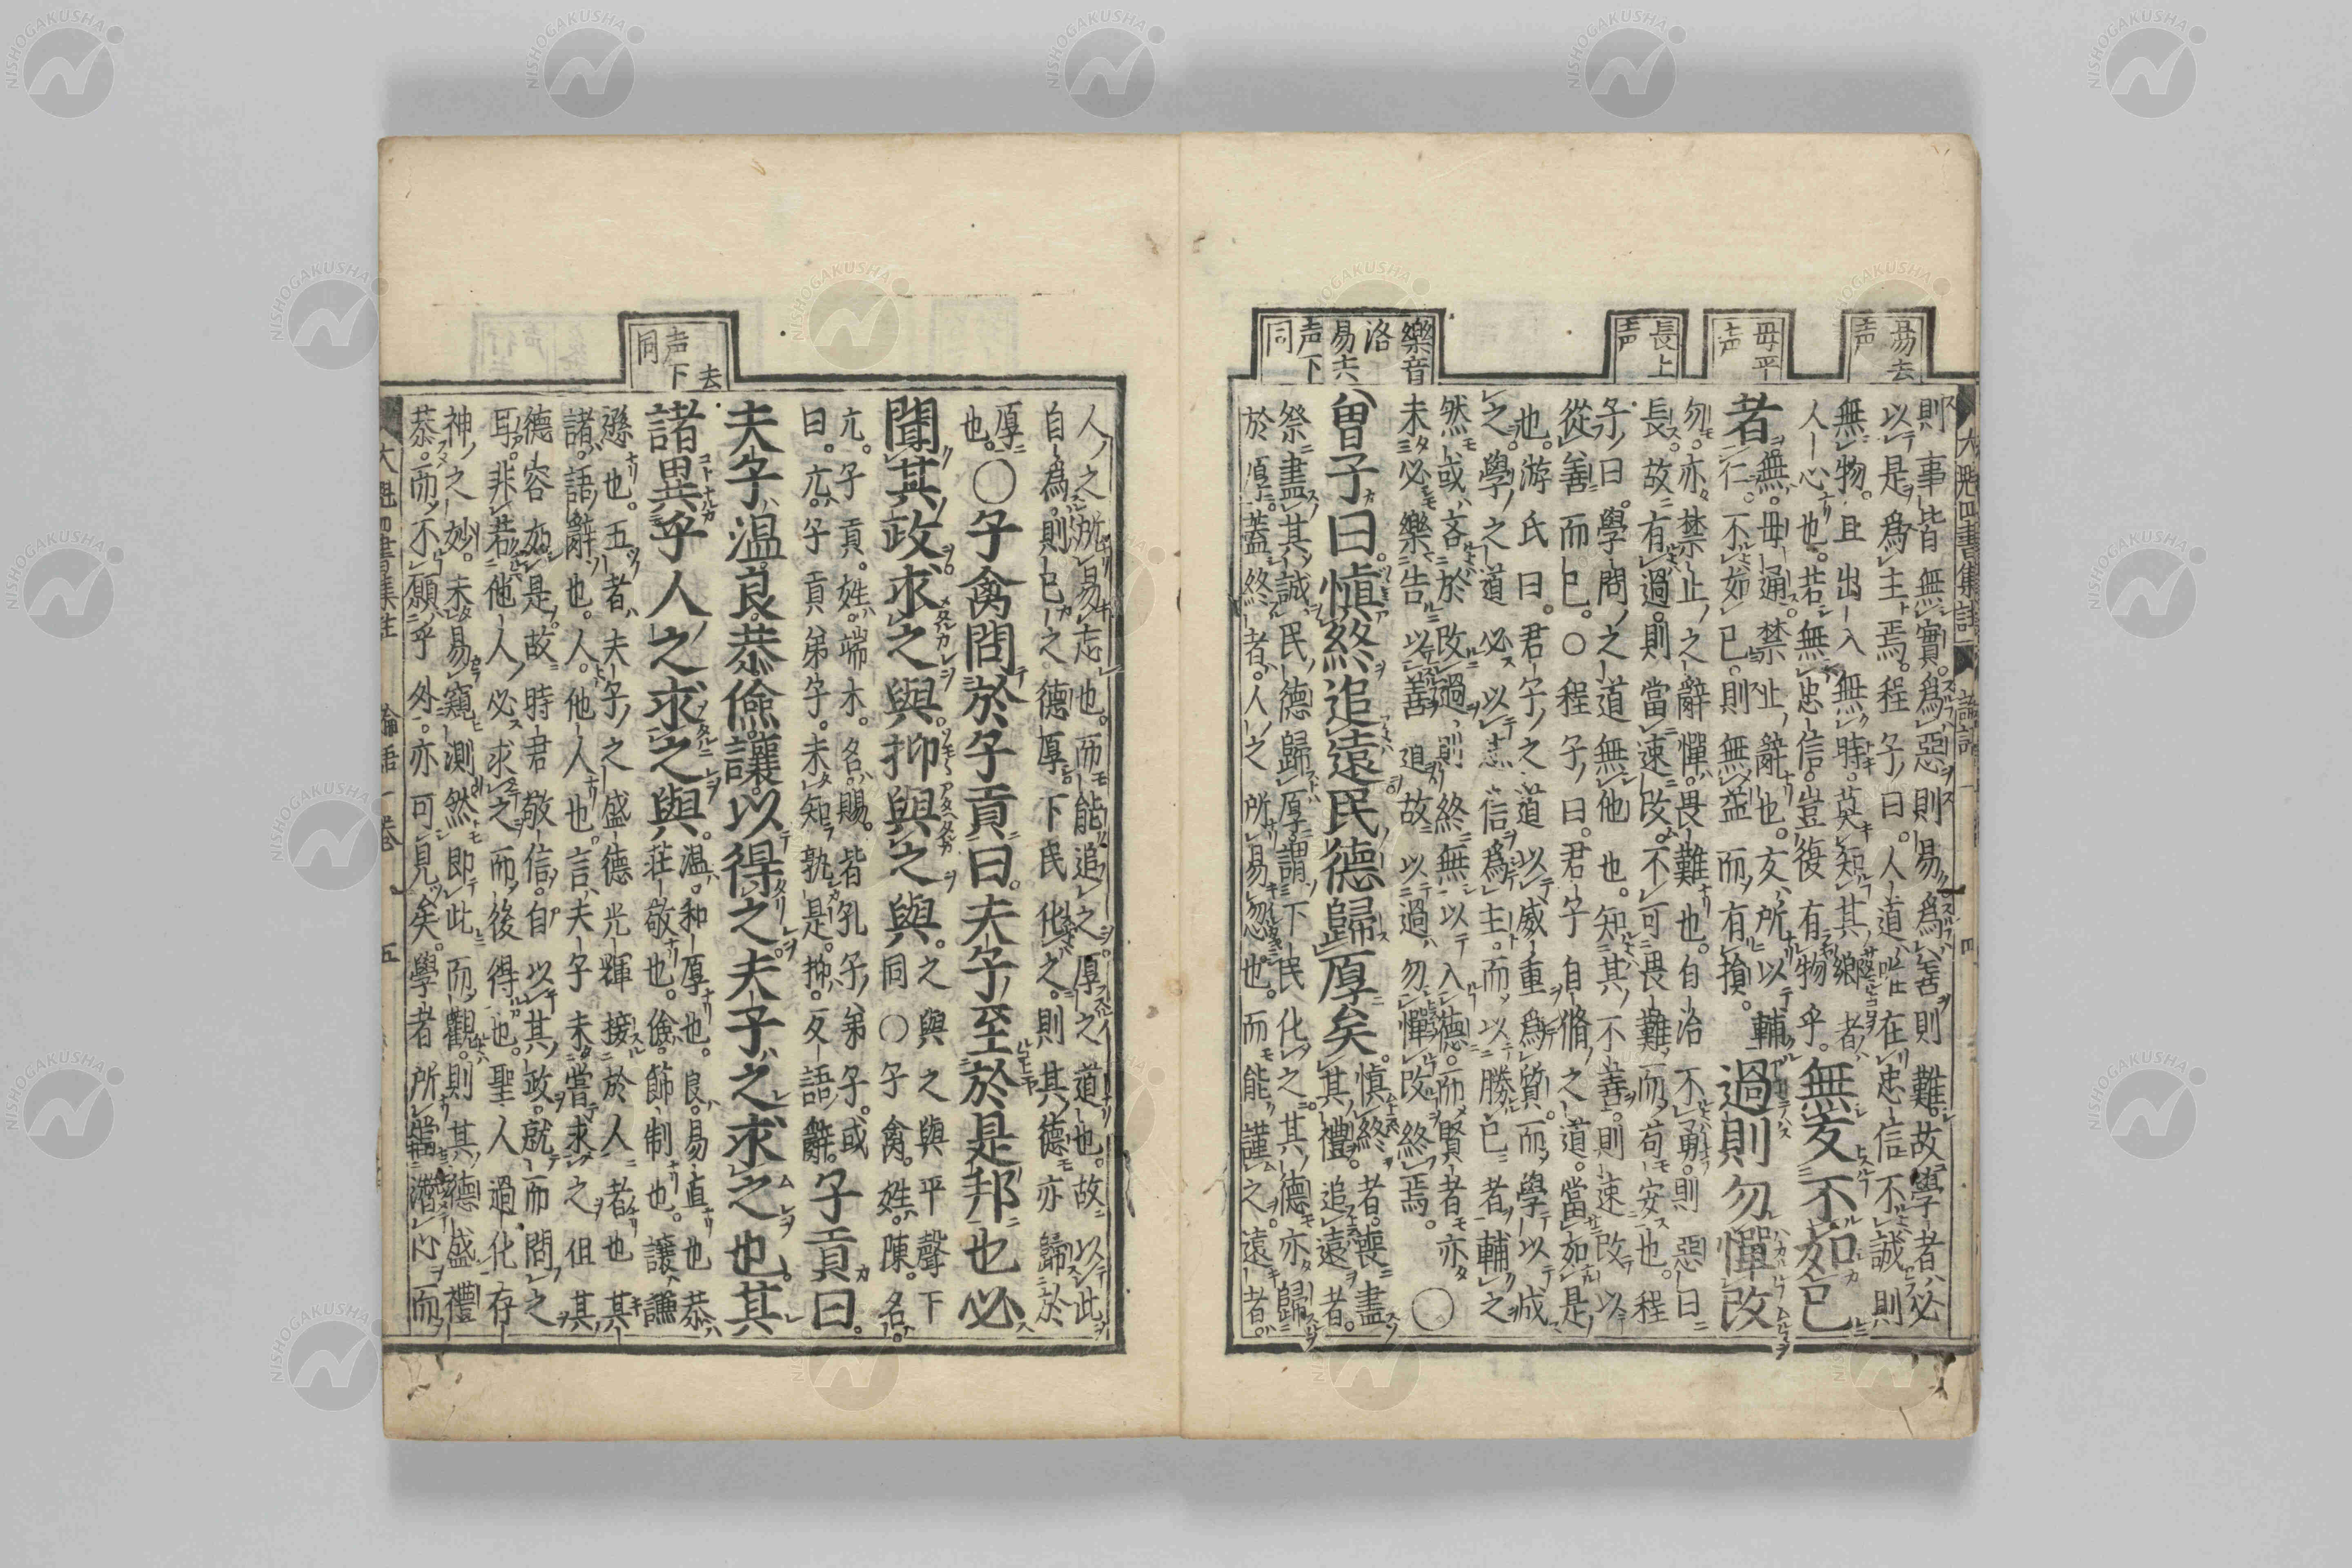 易去
声
毋平
上声
長上
声
樂音
洛
易去
声下
同
則事皆無實爲惡則易爲善則難故學者必
以是爲主焉程子曰人道唯在忠信不誠則
無物且出入無時莫知其鄉者
人心也若無忠信豈復有物乎
無友不如己
者
無毋通禁止辭也友所以輔
仁不如己則無益而有損
過則勿憚改
勿亦禁止之辭憚畏難也自治不勇則惡日
長故有過則當速改不可畏難而苟安也程
子曰學問之道無他也知其不善則速改以
從善而已○程子曰君子自脩之道當如是
也游氏曰君子之道以威重爲質而學以成
之學之道必以忠信爲主而以勝己者輔之
然或吝於改過則終無以入德而賢者亦
未必樂告以善道故以過勿憚改終焉
○
曾子曰慎終追遠民德歸厚矣
慎終者喪盡
其禮追遠者
祭盡其誠民德歸厚謂下民化之其德亦歸
於厚蓋終者人之所易忽也而能謹之遠者
大魁四書集註
論語一
四
人之所易忘也而能追之厚之道也故以此
自爲則己之德厚下民化之則其德亦歸於
厚
也
○子禽問於子貢曰夫子至於是邦也必
聞其政求之與抑與之與
之與之與平聲下
同○子禽姓陳名
亢子貢姓端木名賜皆孔子弟子或
曰亢子貢弟子未知孰是抑反語辭
子貢曰
夫子温良恭儉讓以得之夫子之求之也其
去
声下
同
諸異乎人之求之與
温和厚也良易直也恭
莊敬也儉節制也讓謙
遜也五者夫子之盛德光輝接於人者也其
諸語辭也人他人也言夫子未嘗求之但其
德容如是故時君敬信自以其政就而問之
耳非若他人必求之而後得也聖人過化存
神之妙未易窺測然即此而觀則其德盛禮
恭而不願乎外亦可見矣學者所當潛心而
大魁四書集註
論語一卷
五